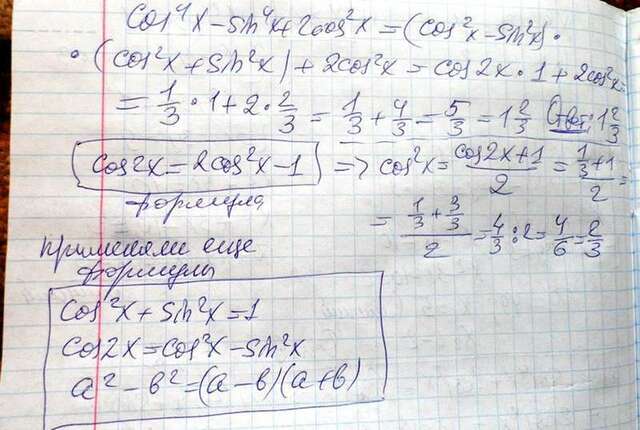 cos⁴x-sin⁴x+2cos²x=(cos²x-sin²x)·
·(cos²x+sin²x)+2cos²x=cos2x·1+2cos²x=
=1/3·1+2·2/3=1/3+4/3=5/3=1 2/3 Ответ: 1 2/3
cos2x=2cos²x-1 => cos²x=(cos2x+1)/2=(1/3+1)/2=
формула
=(1/3+3/3)/2=4/3:2=4/6=2/3
применяем еще
формулы
cos²x+sin²x=1
cos2x=cos²x-sin²x
a²-b²=(a-b)(a+b)